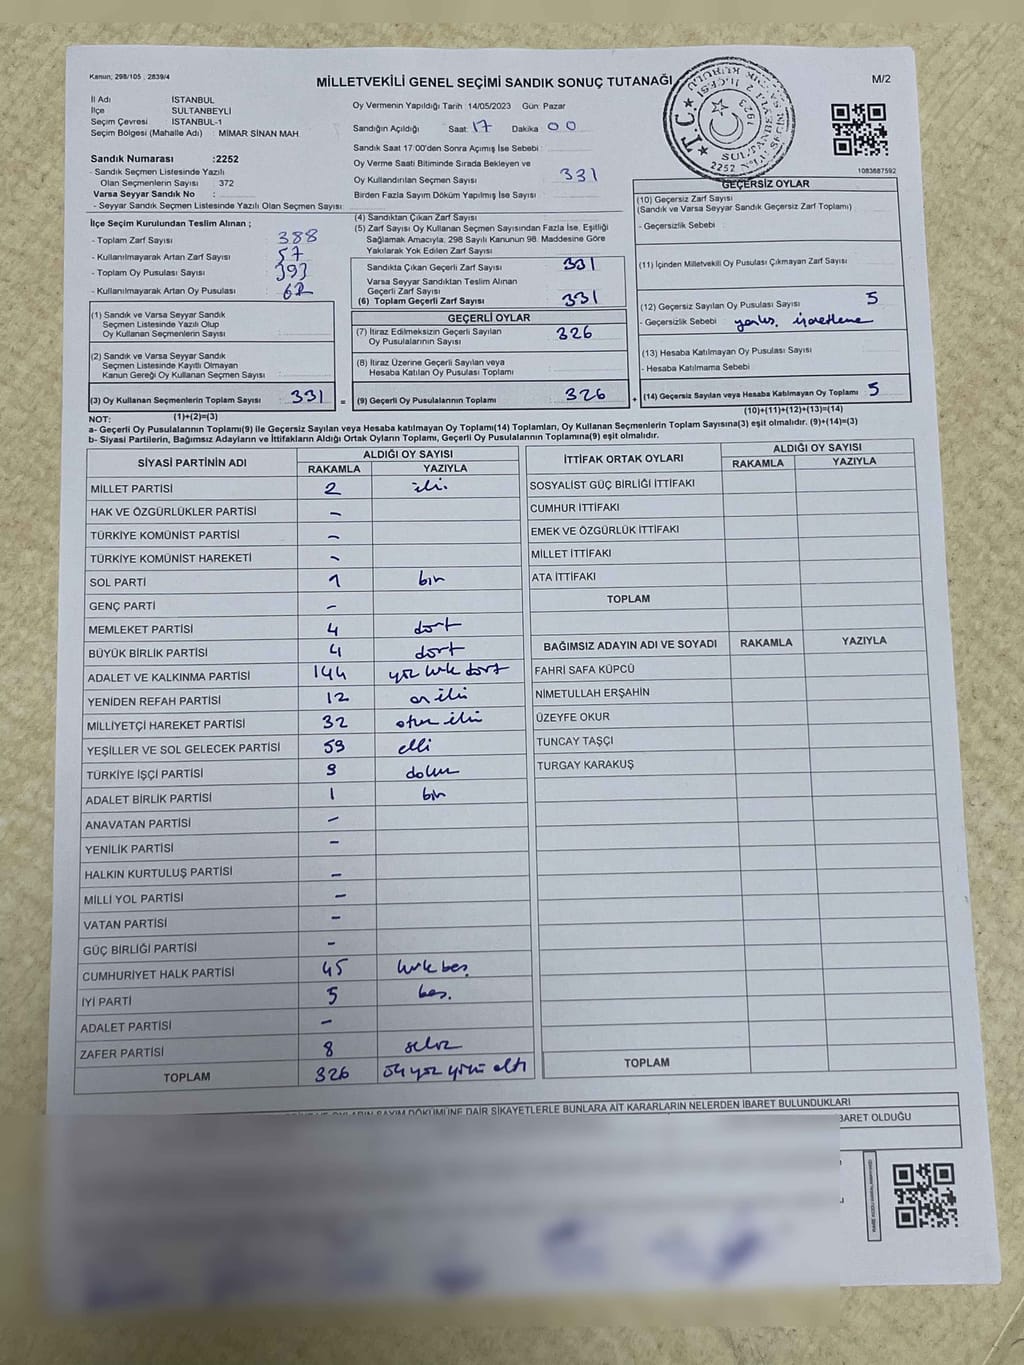 Kanun; 298/105 , 2839/4
MİLLETVEKİLİ GENEL SEÇİMİ SANDIK SONUÇ TUTANAĞI
M/2
İl Adı İSTANBUL
İlçe SULTANBEYLİ
Seçim Çevresi İSTANBUL-1
Seçim Bölgesi (Mahalle Adı) : MİMAR SİNAN MAH.
Sandık Numarası :2252
- Sandık Seçmen Listesinde Yazılı
Olan Seçmenlerin Sayısı 372
Varsa Seyyar Sandık No :
- Seyyar Sandık Seçmen Listesinde Yazılı Olan Seçmen Sayısı
Oy Vermenin Yapıldığı Tarih : 14/05/2023 Gün: Pazar
Sandığın Açıldığı Saat: 17 Dakika 00
Sandık Saat 17:00'den Sonra Açımış İse Sebebi :
Oy Verme Saati Bitiminde Sırada Bekleyen ve
Oy Kullandırılan Seçmen Sayısı 331
Birden Fazla Sayım Döküm Yapılmış İse Sayısı
T.C.
1923
SULTANBEYLİ
2252
1083687592
İlçe Seçim Kurulundan Teslim Alınan ;
- Toplam Zarf Sayısı : 388
- Kullanılmayarak Artan Zarf Sayısı : 57
- Toplam Oy Pusulası Sayısı : 393
- Kullanılmayarak Artan Oy Pusulası : 62
(1) Sandık ve Varsa Seyyar Sandık
Seçmen Listesinde Yazılı Olup
Oy Kullanan Seçmenlerin Sayısı :
(2) Sandık ve Varsa Seyyar Sandık
Seçmen Listesinde Kayıtlı Olmayan
Kanun Gereği Oy Kullanan Seçmen Sayısı :
(3) Oy Kullanan Seçmenlerin Toplam Sayısı : 331 =
(1)+(2)=(3)
(4) Sandıktan Çıkan Zarf Sayısı
(5) Zarf Sayısı Oy Kullanan Seçmen Sayısından Fazla İse, Eşitliği
Sağlamak Amacıyla; 298 Sayılı Kanunun 98. Maddesine Göre
Yakılarak Yok Edilen Zarf Sayısı
Sandıkta Çıkan Geçerli Zarf Sayısı : 331
Varsa Seyyar Sandıktan Teslim Alınan
Geçerli Zarf Sayısı
(6) Toplam Geçerli Zarf Sayısı : 331
GEÇERLİ OYLAR
(7) İtiraz Edilmeksizin Geçerli Sayılan
Oy Pusulalarının Sayısı : 326
(8) İtiraz Üzerine Geçerli Sayılan veya
Hesaba Katılan Oy Pusulası Toplamı
(9) Geçerli Oy Pusulalarının Toplamı : 326 +
GEÇERSİZ OYLAR
(10) Geçersiz Zarf Sayısı
(Sandık ve Varsa Seyyar Sandık Geçersiz Zarf Toplamı)
- Geçersizlik Sebebi :
(11) İçinden Milletvekili Oy Pusulası Çıkmayan Zarf Sayısı
(12) Geçersiz Sayılan Oy Pusulası Sayısı : 5
- Geçersizlik Sebebi : yanlış. işaretleme
(13) Hesaba Katılmayan Oy Pusulası Sayısı
- Hesaba Katılmama Sebebi
(14) Geçersiz Sayılan veya Hesaba Katılmayan Oy Toplamı : 5
(10)+(11)+(12)+(13)=(14)
NOT:
a- Geçerli Oy Pusulalarının Toplamı(9) ile Geçersiz Sayılan veya Hesaba katılmayan Oy Toplamı(14) Toplamları, Oy Kullanan Seçmenlerin Toplam Sayısına(3) eşit olmalıdır. (9)+(14)=(3)
b- Siyasi Partilerin, Bağımsız Adayların ve İttifakların Aldığı Ortak Oyların Toplamı, Geçerli Oy Pusulalarının Toplamına(9) eşit olmalıdır.
SİYASİ PARTİNİN ADI ALDIĞI OY SAYISI
RAKAMLA YAZIYLA
MİLLET PARTİSİ 2 iki.
HAK VE ÖZGÜRLÜKLER PARTİSİ -
TÜRKİYE KOMÜNİST PARTİSİ -
TÜRKİYE KOMÜNİST HAREKETİ -
SOL PARTİ 1 bir
GENÇ PARTİ -
MEMLEKET PARTİSİ 4 dört
BÜYÜK BİRLİK PARTİSİ 4 dört
ADALET VE KALKINMA PARTİSİ 144 yüz kırk dört
YENİDEN REFAH PARTİSİ 12 on iki
MİLLİYETÇİ HAREKET PARTİSİ 32 otuz iki
YEŞİLLER VE SOL GELECEK PARTİSİ 59 elli
TÜRKİYE İŞÇİ PARTİSİ 9 dokuz
ADALET BİRLİK PARTİSİ 1 bir
ANAVATAN PARTİSİ -
YENİLİK PARTİSİ -
HALKIN KURTULUŞ PARTİSİ -
MİLLİ YOL PARTİSİ -
VATAN PARTİSİ -
GÜÇ BİRLİĞİ PARTİSİ -
CUMHURİYET HALK PARTİSİ 45 kırk beş.
İYİ PARTİ 5 beş.
ADALET PARTİSİ -
ZAFER PARTİSİ 8 sekiz
TOPLAM 326 üç yüz yirmi altı
İTTİFAK ORTAK OYLARI ALDIĞI OY SAYISI
RAKAMLA YAZIYLA
SOSYALİST GÜÇ BİRLİĞİ İTTİFAKI
CUMHUR İTTİFAKI
EMEK VE ÖZGÜRLÜK İTTİFAKI
MİLLET İTTİFAKI
ATA İTTİFAKI
TOPLAM
BAĞIMSIZ ADAYIN ADI VE SOYADI RAKAMLA YAZIYLA
FAHRİ SAFA KÜPCÜ
NİMETULLAH ERŞAHİN
ÜZEYFE OKUR
TUNCAY TAŞÇI
TURGAY KARAKUŞ
TOPLAM
OYLARIN SAYIM DÖKÜMÜNE DAİR ŞİKAYETLERLE BUNLARA AİT KARARLARIN NELERDEN İBARET BULUNDUKLARI
İBARET OLDUĞU